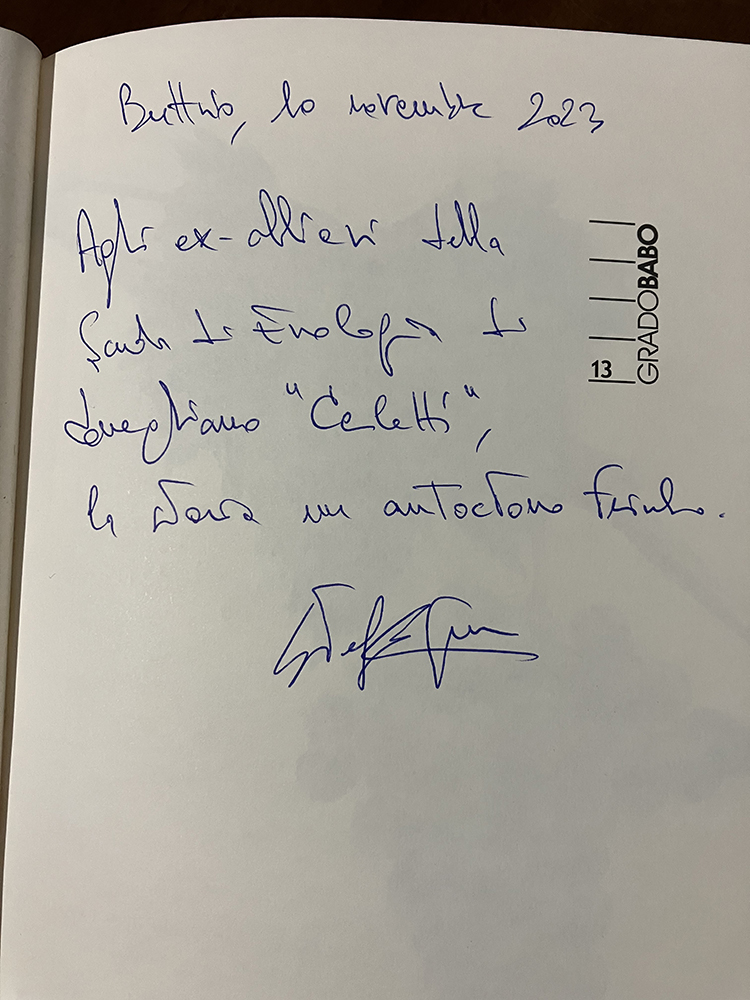 Buttrio, 10 novembre 2023
Agli ex-allievi della
Scuola di Enologia di
Conegliano "Cerletti",
la storia un autoctono friulano.
13
GRADOBABO